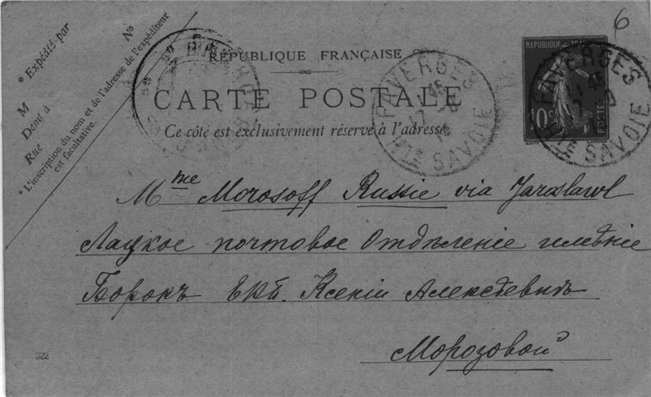 6
* Expédié par
N°
M
Demt à
Rue
* L'inscription du nom et de l'adresse de l'expéditeur
est facultative.
RÉPUBLIQUE FRANÇAISE
CARTE POSTALE
Ce côté est exclusivement réservé à l'adresse.
FAVERGES
Hte SAVOIE
REPUBLIQUE FRANÇAISE
10c
POSTES
FAVERGES
Hte SAVOIE
Mme Morosoff Russie via Jaraslawl
Лацкое почтовое Отдѣленіе имѣніе
Борокъ Ксеніи Алексѣевнѣ
Морозовой
322